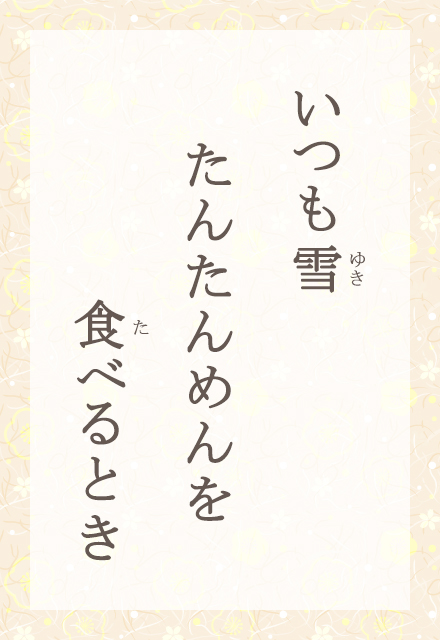 いつも雪
ゆき
たんたんめんを
食べるとき
た